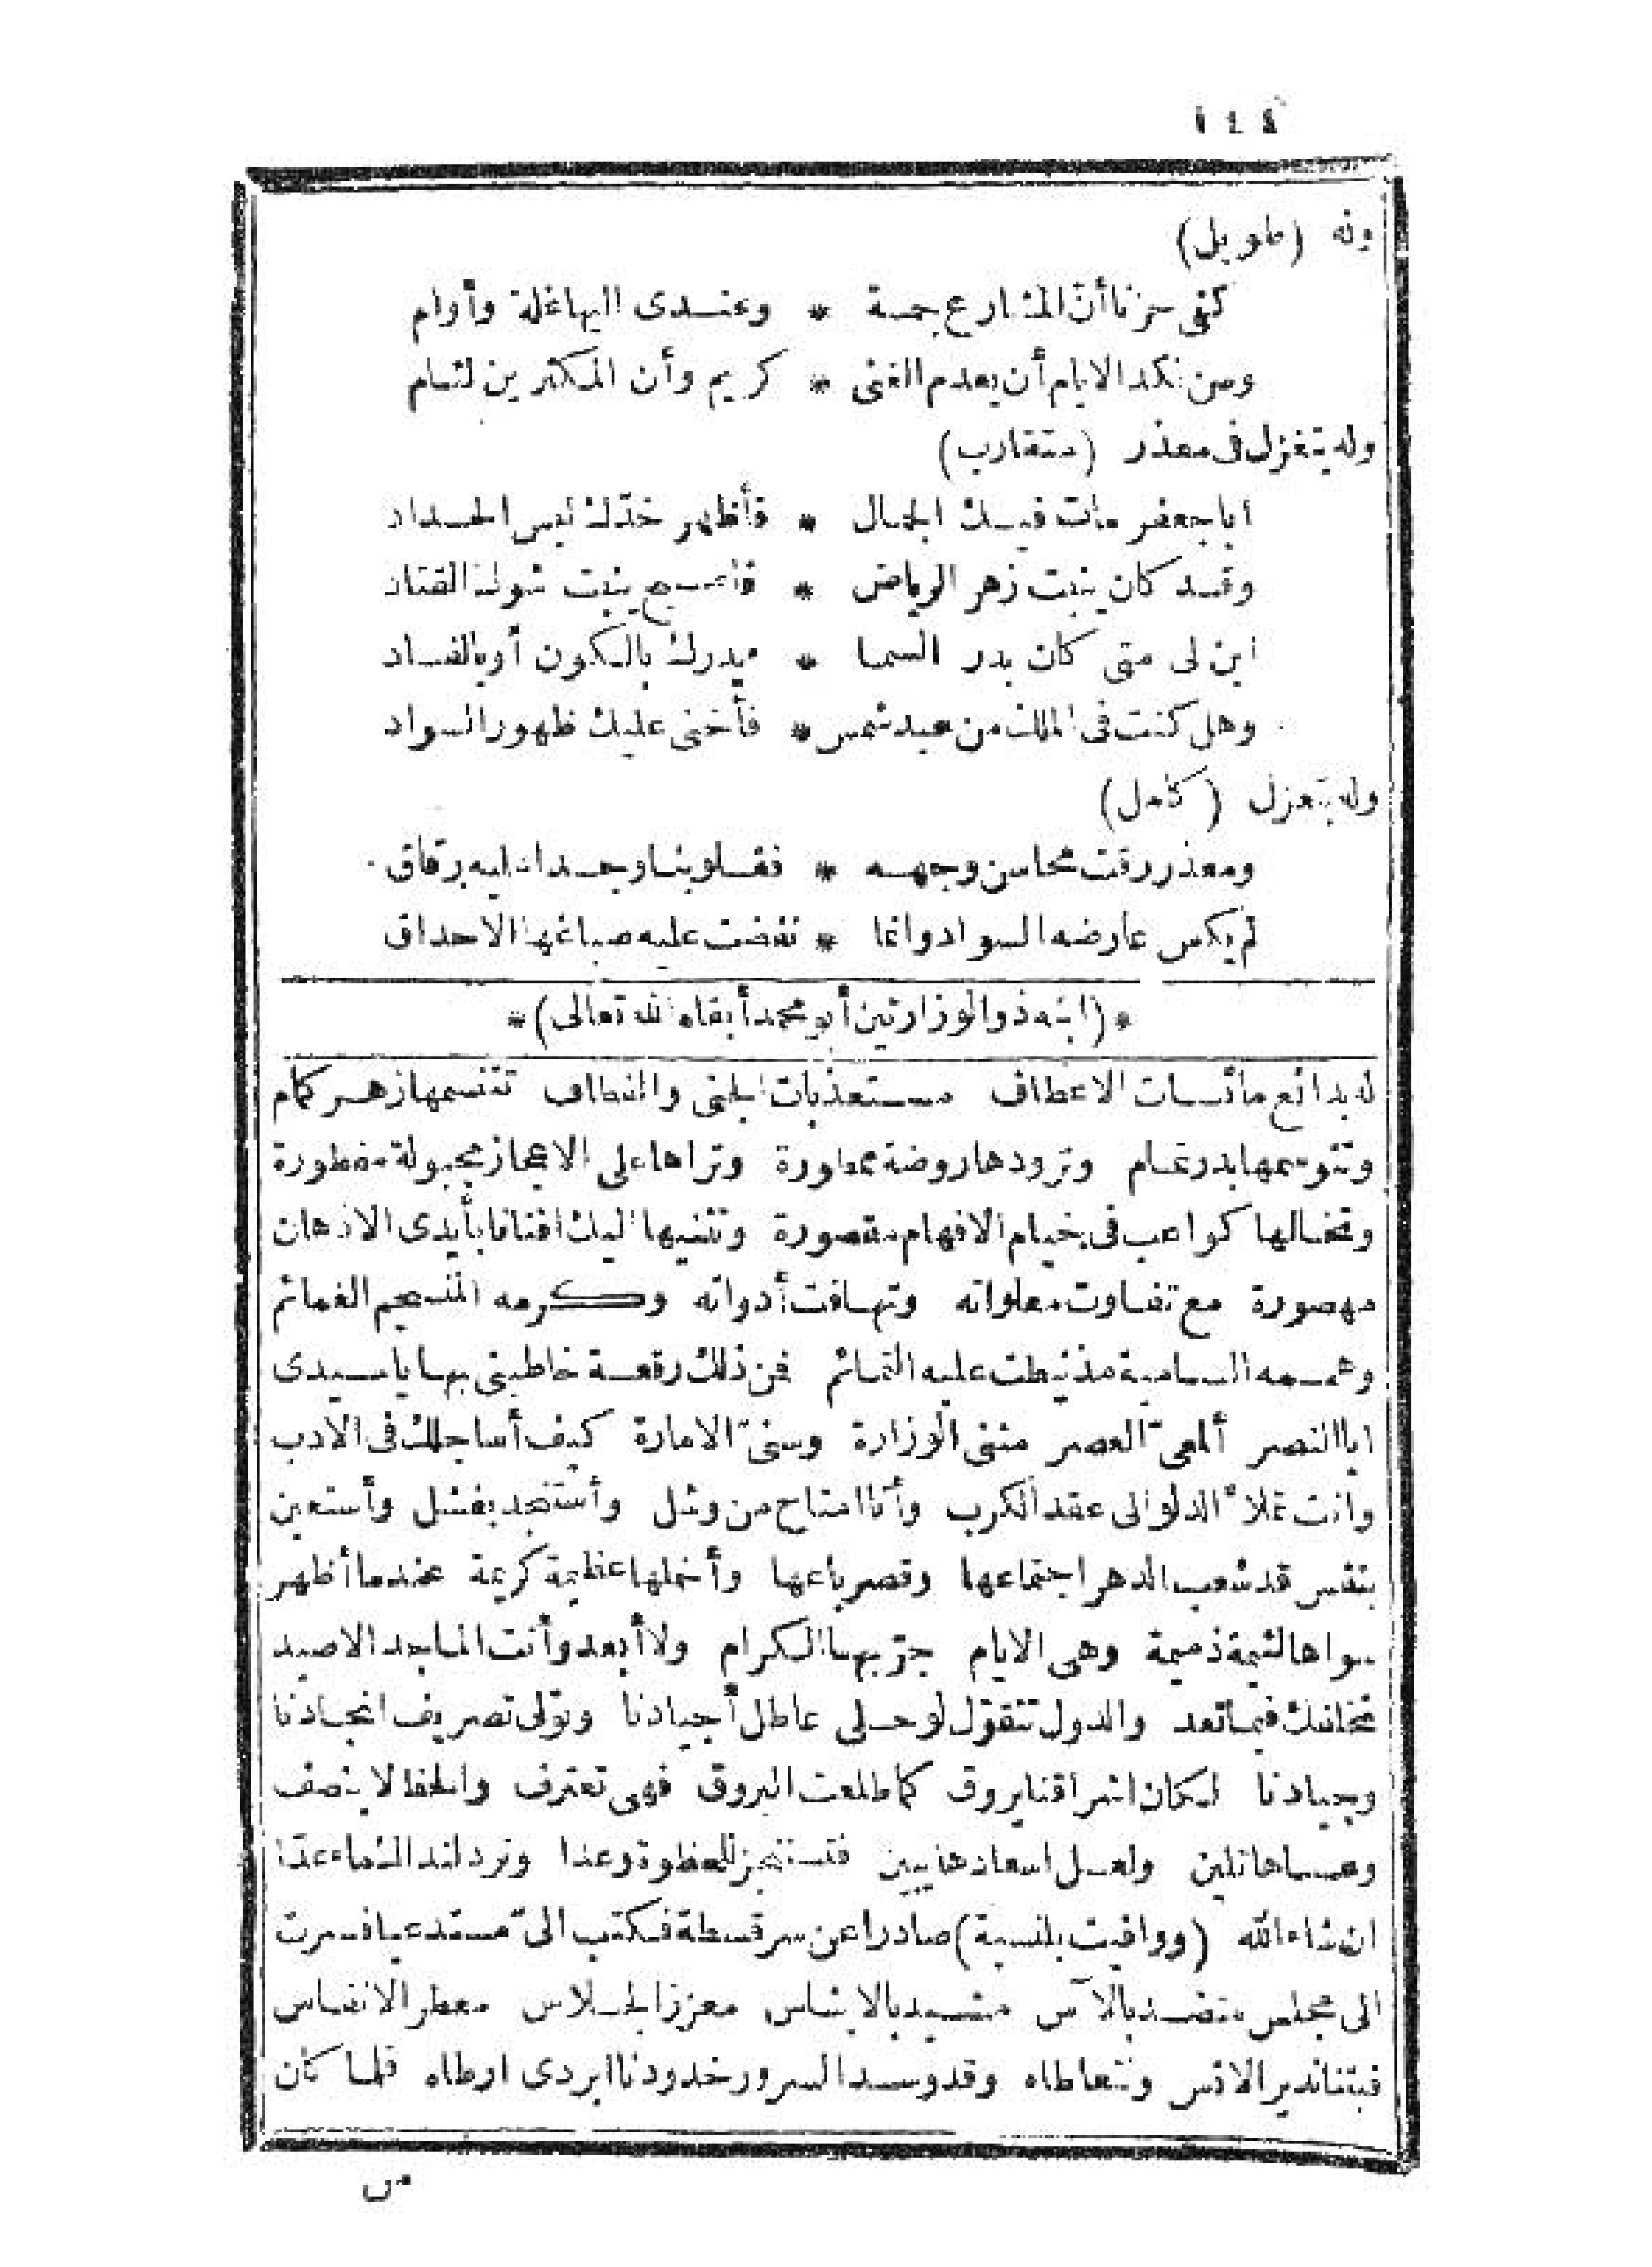 ١٤٤
وله (طويل)
كفى حزنا أن المشارع جمة * وعندى اليها غلة وأوام
ومن نكد الايام أن يعدم الغنى * كريم وأن المكثرين لئام
وله يتغزل فى معذر (متقارب)
أبا جعفر مات فيك الجمال * فأظهر خدّك لبس الحداد
وقد كان ينبت زهر الرياض * فأصبح ينبت شوك القتاد
ابن لى متى كان بدر السما * يدرك بالكون أو بالفساد
وهل كنت فى الملك من عبد شمس * فأخنى عليك ظهور السواد
وله يتغزل (كامل)
ومعذر رقت محاسن وجهه * فقلوبنا وجدا عليه رقاق
لم يكس عارضه السواد وانما * نفضت عليه صباغها الاحداق
* (ابنه ذو الوزارتين أبو محمد أبقاه الله تعالى) *
له بدائع مائسات الاعطاف مستعذبات الجنى والنطاف تتنسمها زهر كمام
وتتوسمها بدر تمام وترودها روضة ممطورة وتراها على الاعجاز مجبولة مفطورة
وتخالها كواعب فى خيام الافهام مقصورة وتثنيها اليك افنانا بأيدى الاذهان
مهصورة مع تفاوت معلواته وتهافت أدواته وكرمه المنسجم الغمائم
وهممه السامية مذ نيطت عليه التمائم فمن ذلك رقعة خاطبنى بها يا سيدى
أبا النصر ألمعىّ العصر مثنى الوزارة وسنىّ الامارة كيف أساجلك فى الادب
وأنت تملأ الدلو الى عقد الكرب وأنا امتاح من وشل وأستنجد بفشل وأستعين
بنفس قد شعب الدهر اجتماعها وقصر باعها وأخملها عظيمة كريمة عندما أظهر
سواها لئيمة ذميمة وهى الايام جرّ بها الكرام ولا أبعد وأنت الماجد الاصيد
تخالفك فيما تعد والدول تتقوّل لو حلى عاطل أجيادنا وتولى تصريف انجادنا
وجيادنا لكان اشراقنا يروق كما طلعت البروق فهى تعترف والحظ لا ينصف
وعساها تلين ولعل اسعادها يبين فتستنجز للحظوة وعدا وترد لند الثماء عدّا
ان شاء الله (ووافيت بلنسية) صادرا عن سرقسطة فكتب الىّ مستدعيا فسرت
الى مجلس منضد بالآس مشيد بالايناس معزز الجلاس معطر الانفاس
فبتنا ندير الانس ونتعاطاه وقد وسد السرور خدودنا ابردى ارطاه فلما كان
من